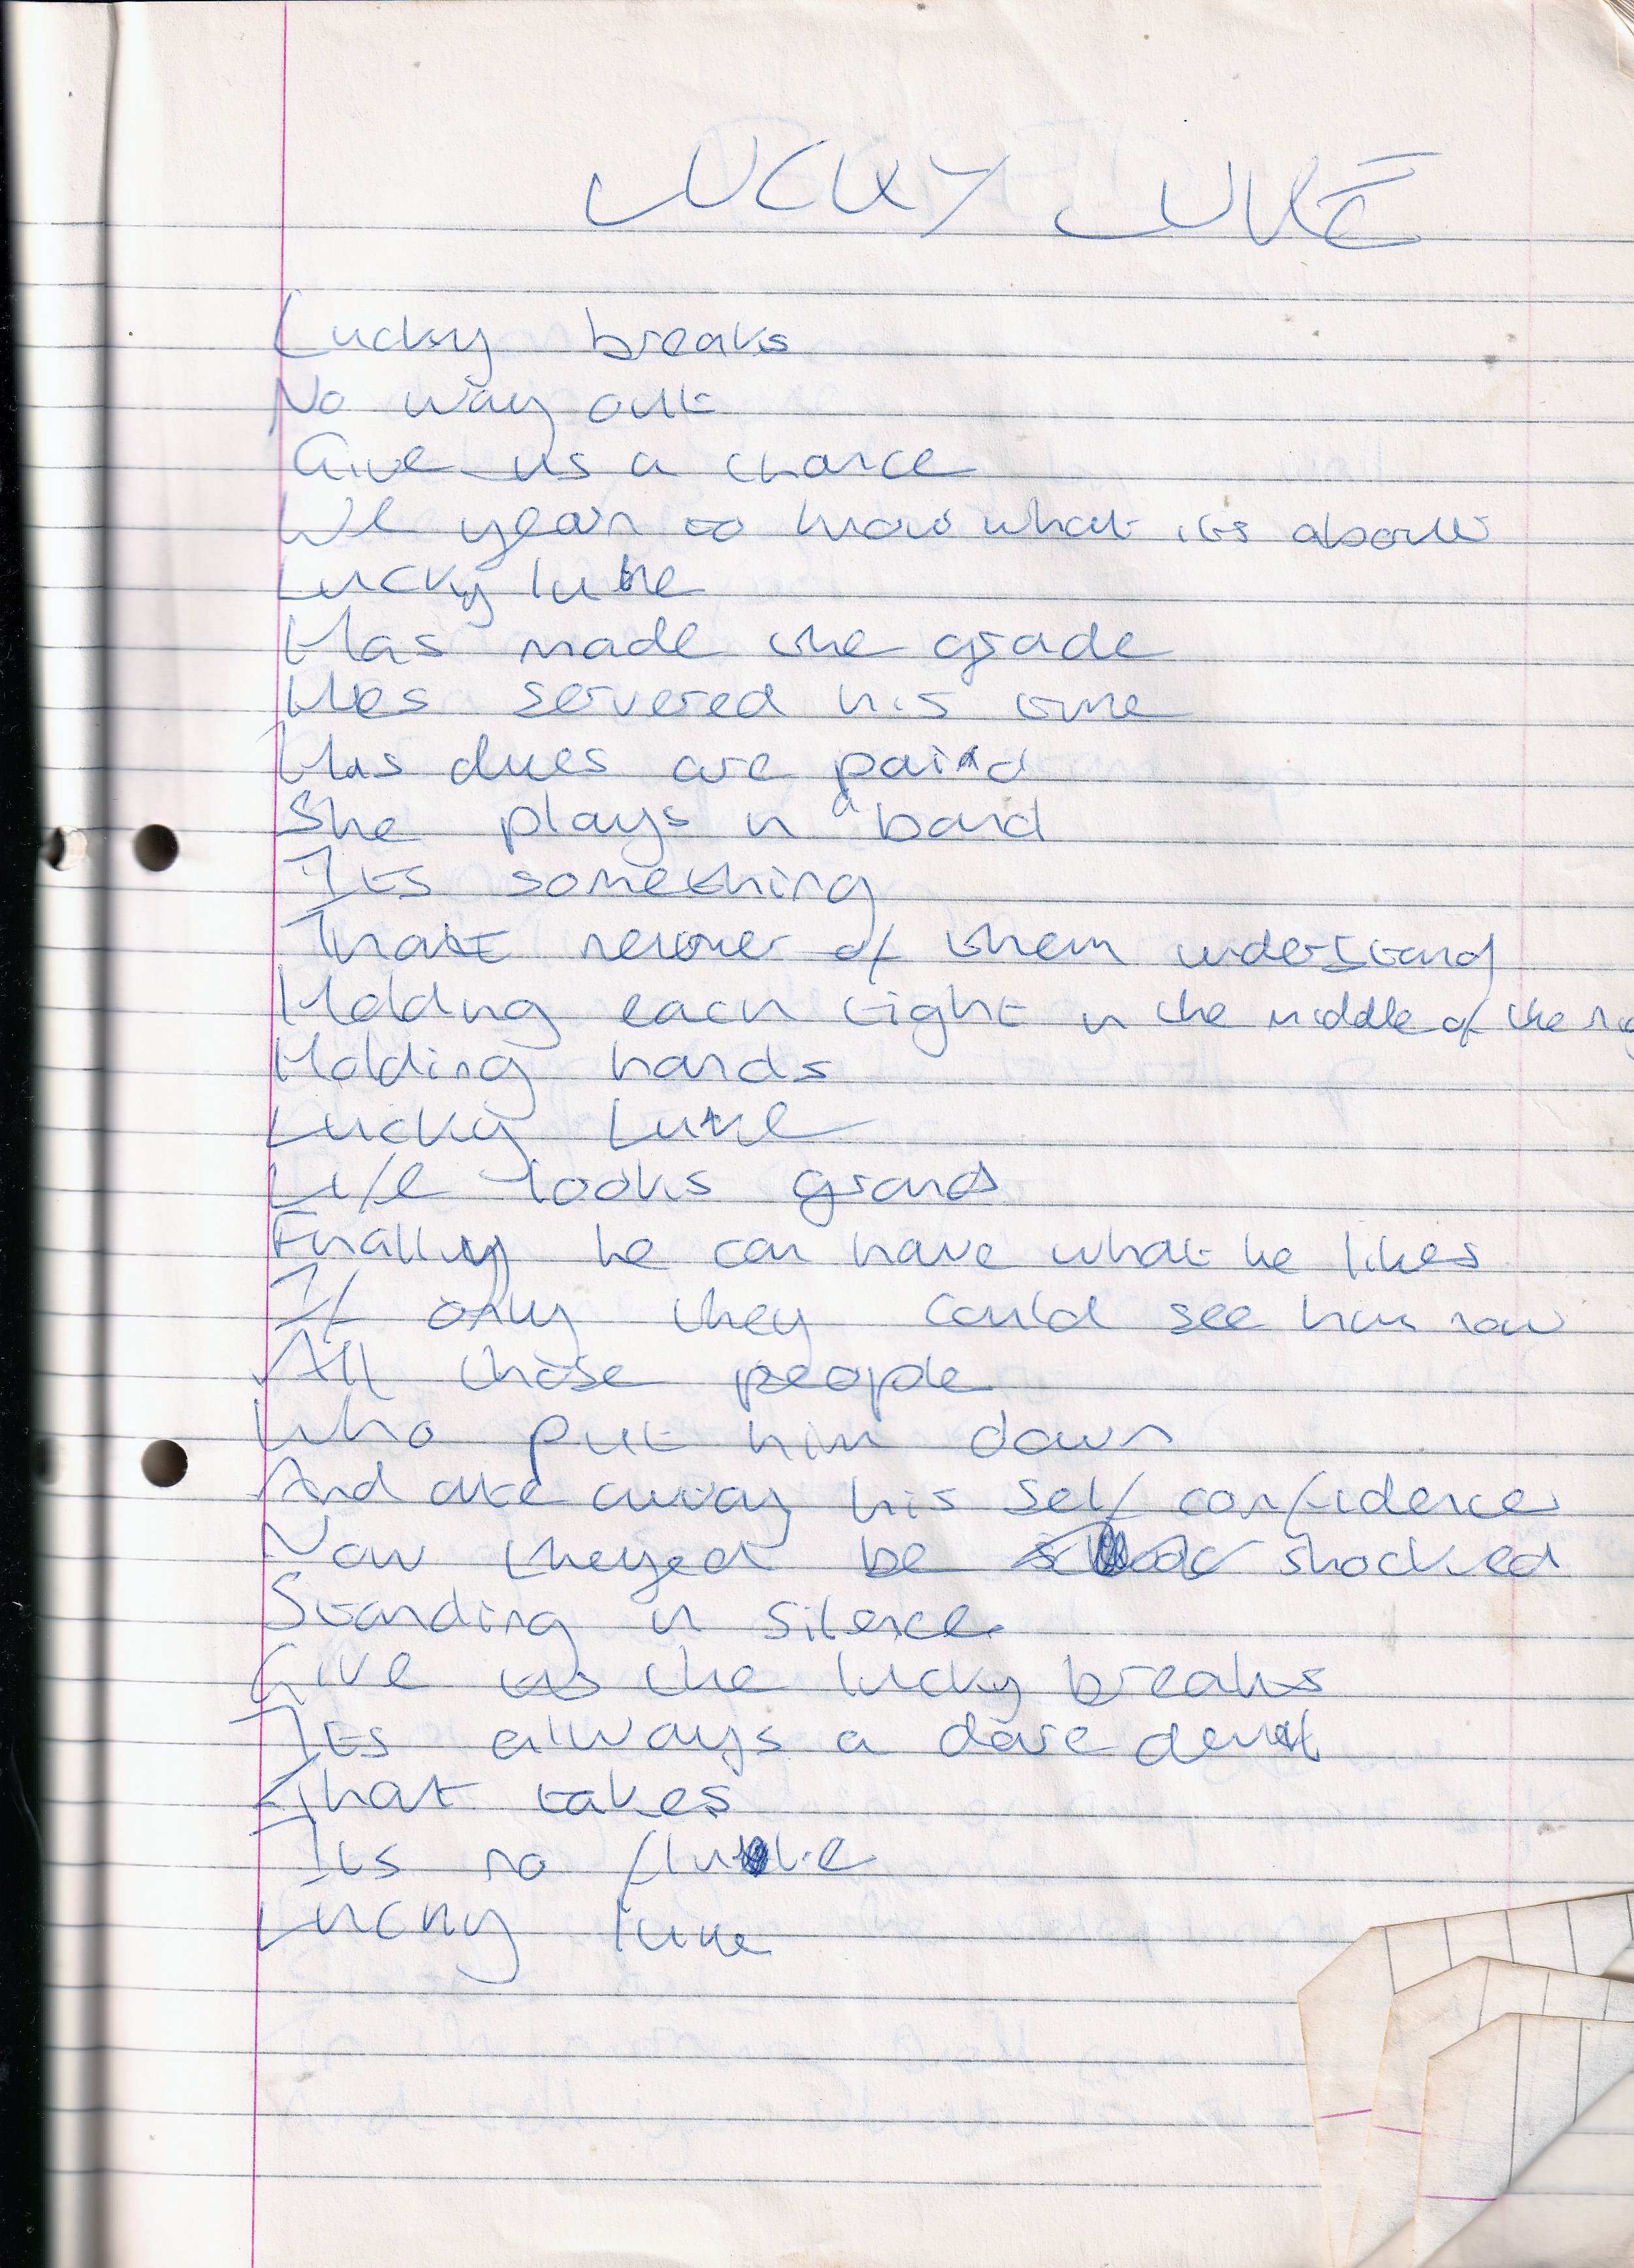 LUCKY LUKE
Lucky breaks
No way out
Give us a chance
We yearn to know what its about
Lucky luke
Has made the grade
Hes servered his time
His dues are paid
She plays in a band
Its something
That neither of them understand
Holding each tight in the middle of the
Holding hands
Lucky Luke
Life looks grand
Finally he can have what he likes
If only they could see him now
All those people
Who put him down
And ate away his self confidence
Now they'd be shocked
Standing in silence
Give us the lucky breaks
Its always a dare devil
That takes
Its no fluke
Lucky luke